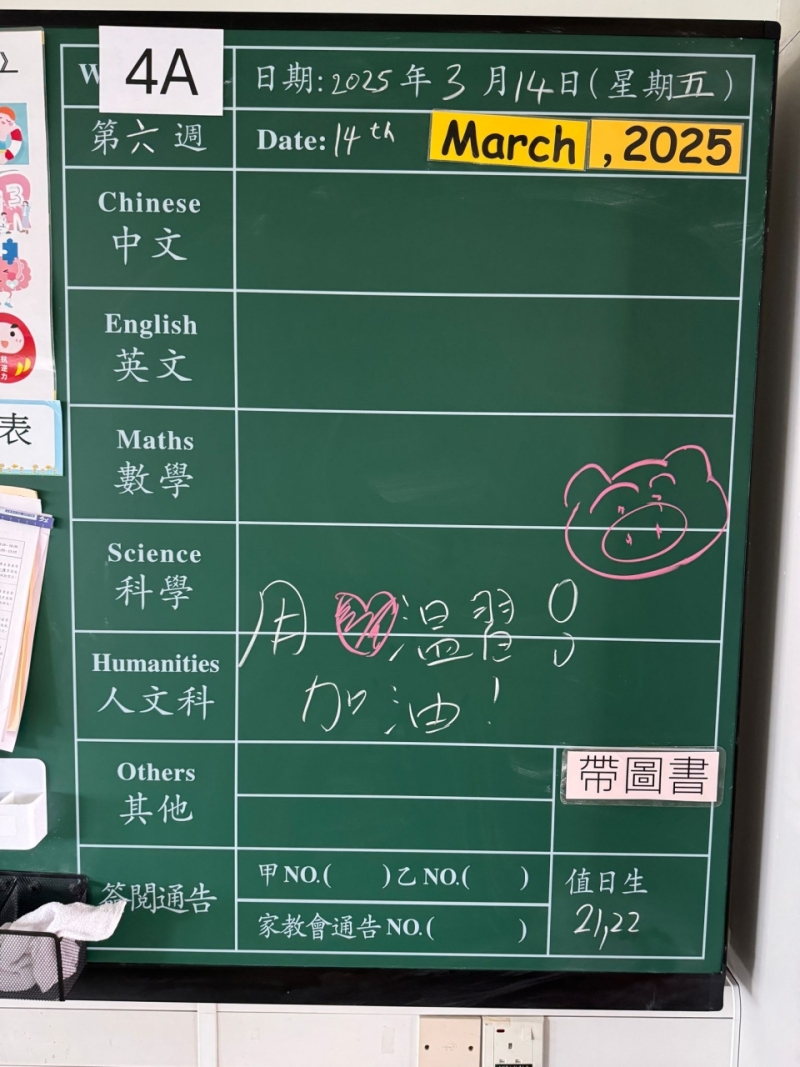 4A
日期:2025年3月14日(星期五)
第六週
Date: 14th March, 2025
Chinese
中文
English
英文
Maths
數學
Science
科學
用 溫習!
Humanities
人文科
加油!
Others
其他
帶圖書
簽閱通告
甲NO.( )乙NO.( )
家教會通告NO.( )
值日生
21,22
表